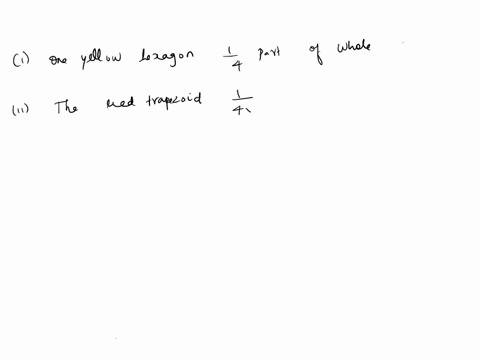 (i) one yellow hexagon 1/4 part of whole
(ii) The red trapezoid 1/4